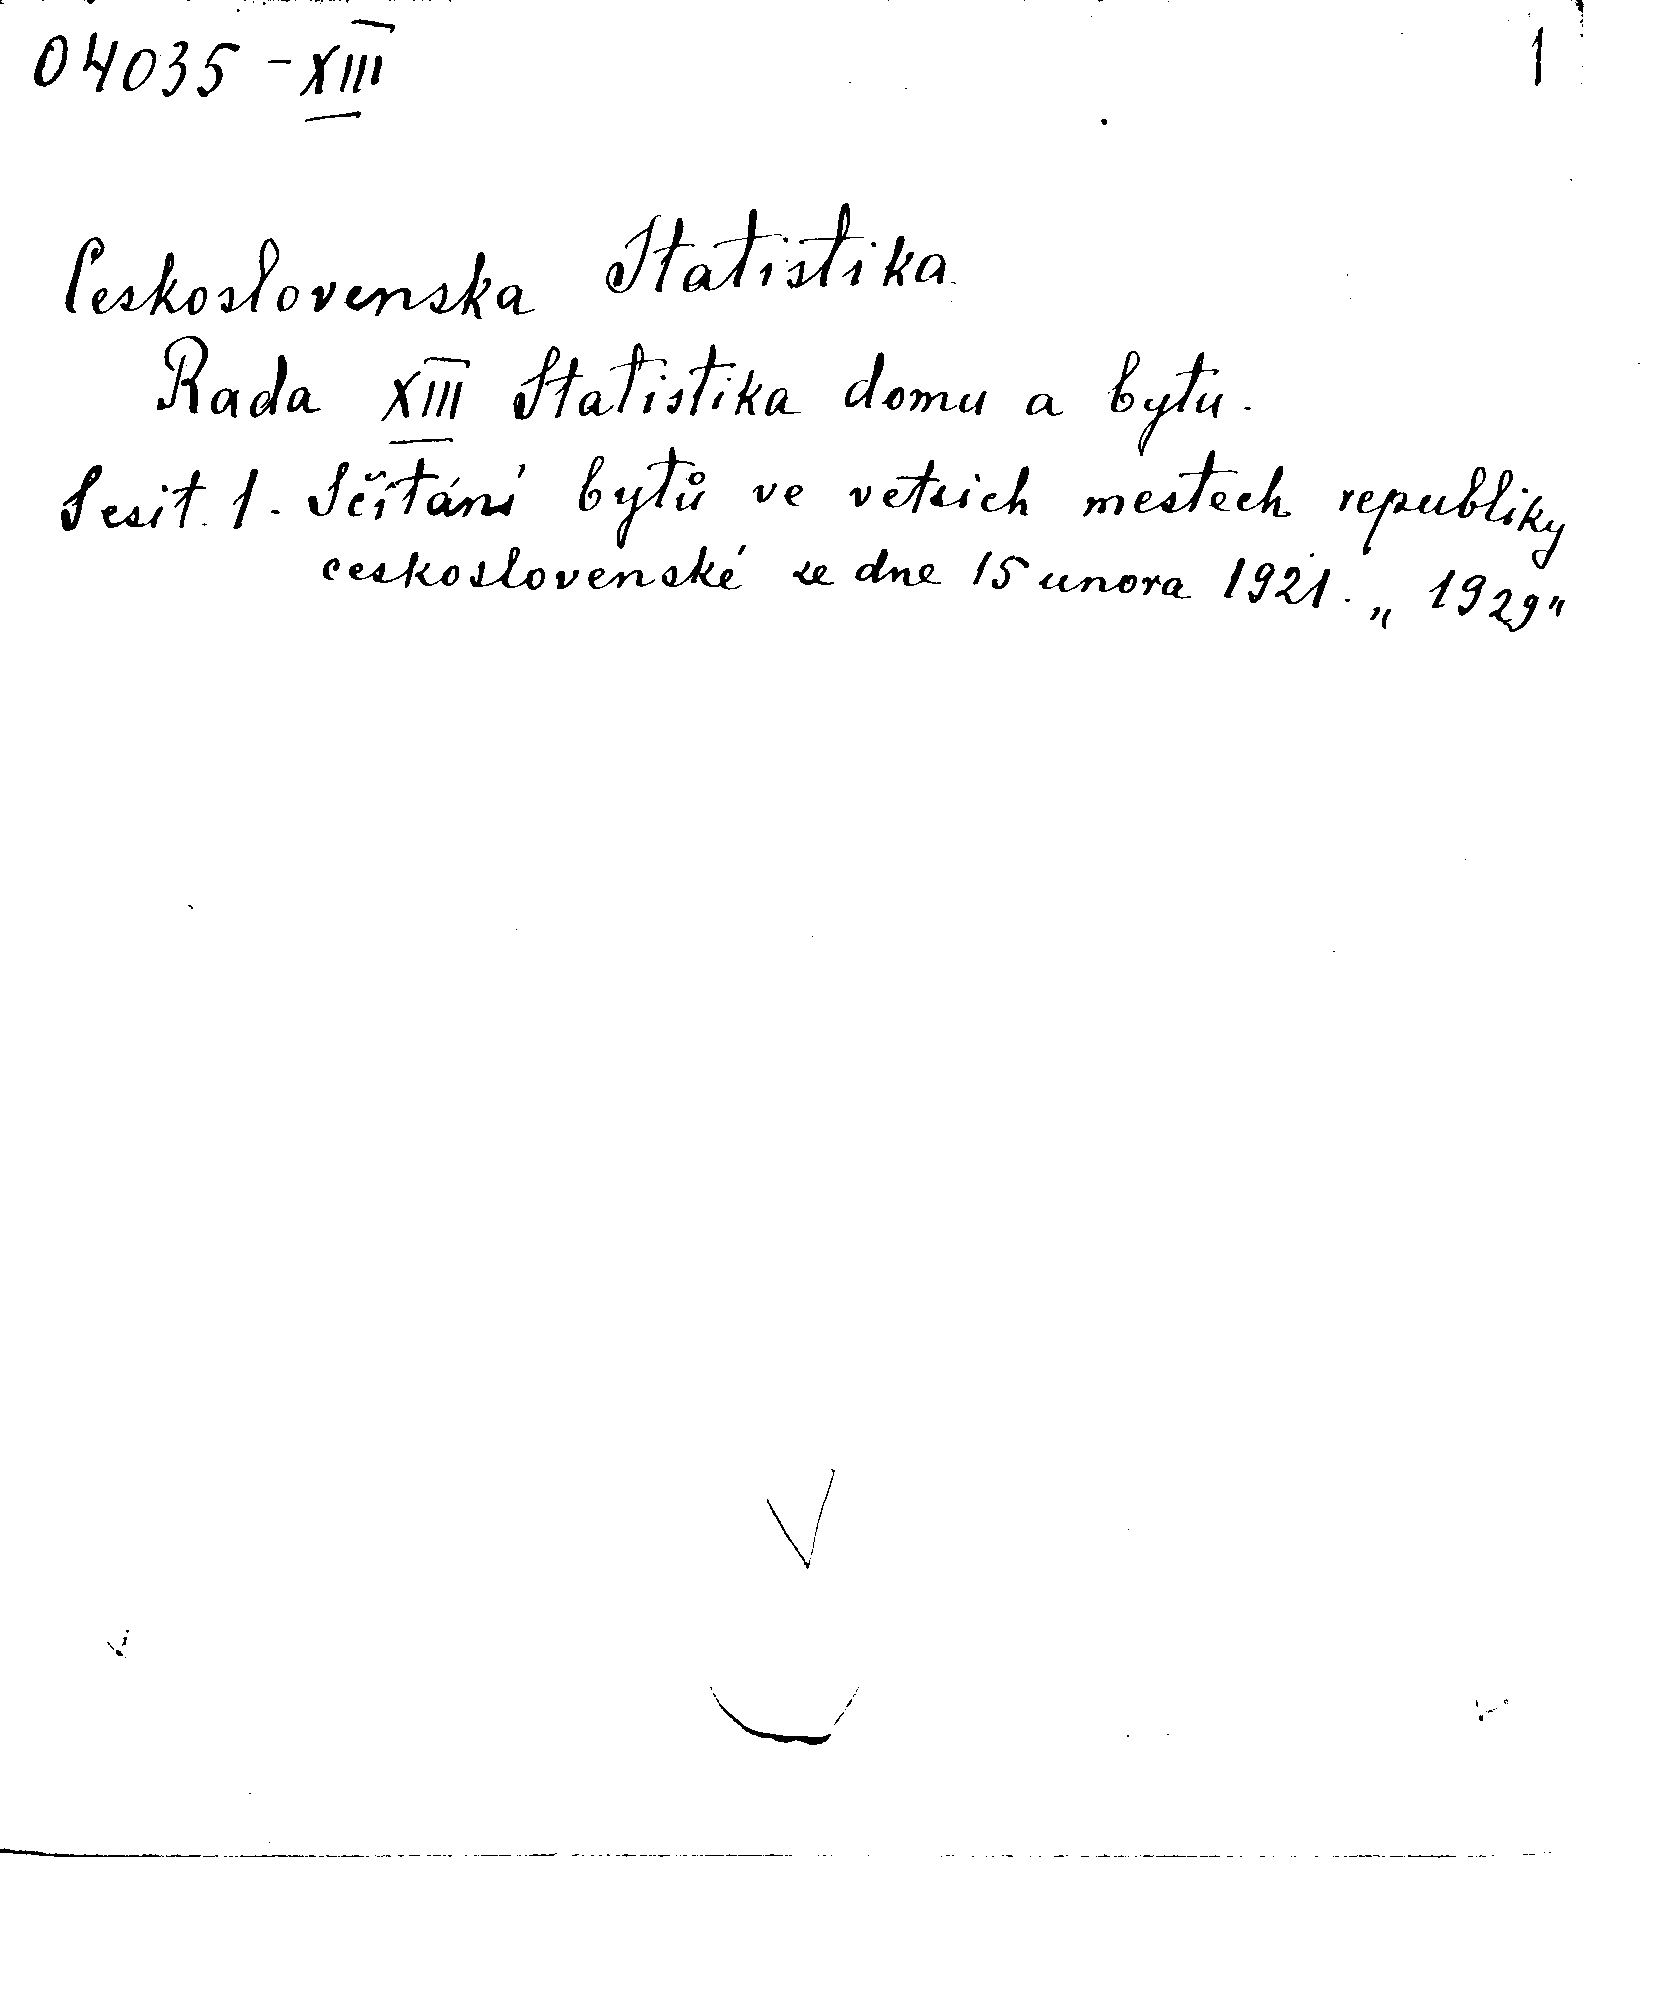 04035 - XIII 1
Ceskoslovenska Statistika.
Rada XIII Statistika domu a bytu.
Sesit. 1. Sčítání bytů ve vetsich mestech republiky
ceskoslovenské ze dne 15 unora 1921. „ 1929"